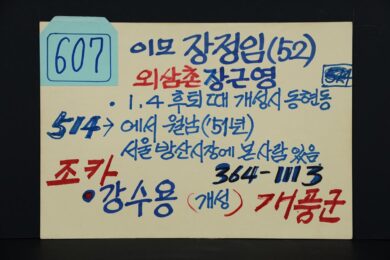 607
이모 장정임(52)
외삼촌 장근영
• 1.4 후퇴때 개성시 동현동
514→ 에서 월남('51년)
서울 방산시장에 본사람 있음
조카 364-1113
• 강수용 (개성) 개풍군